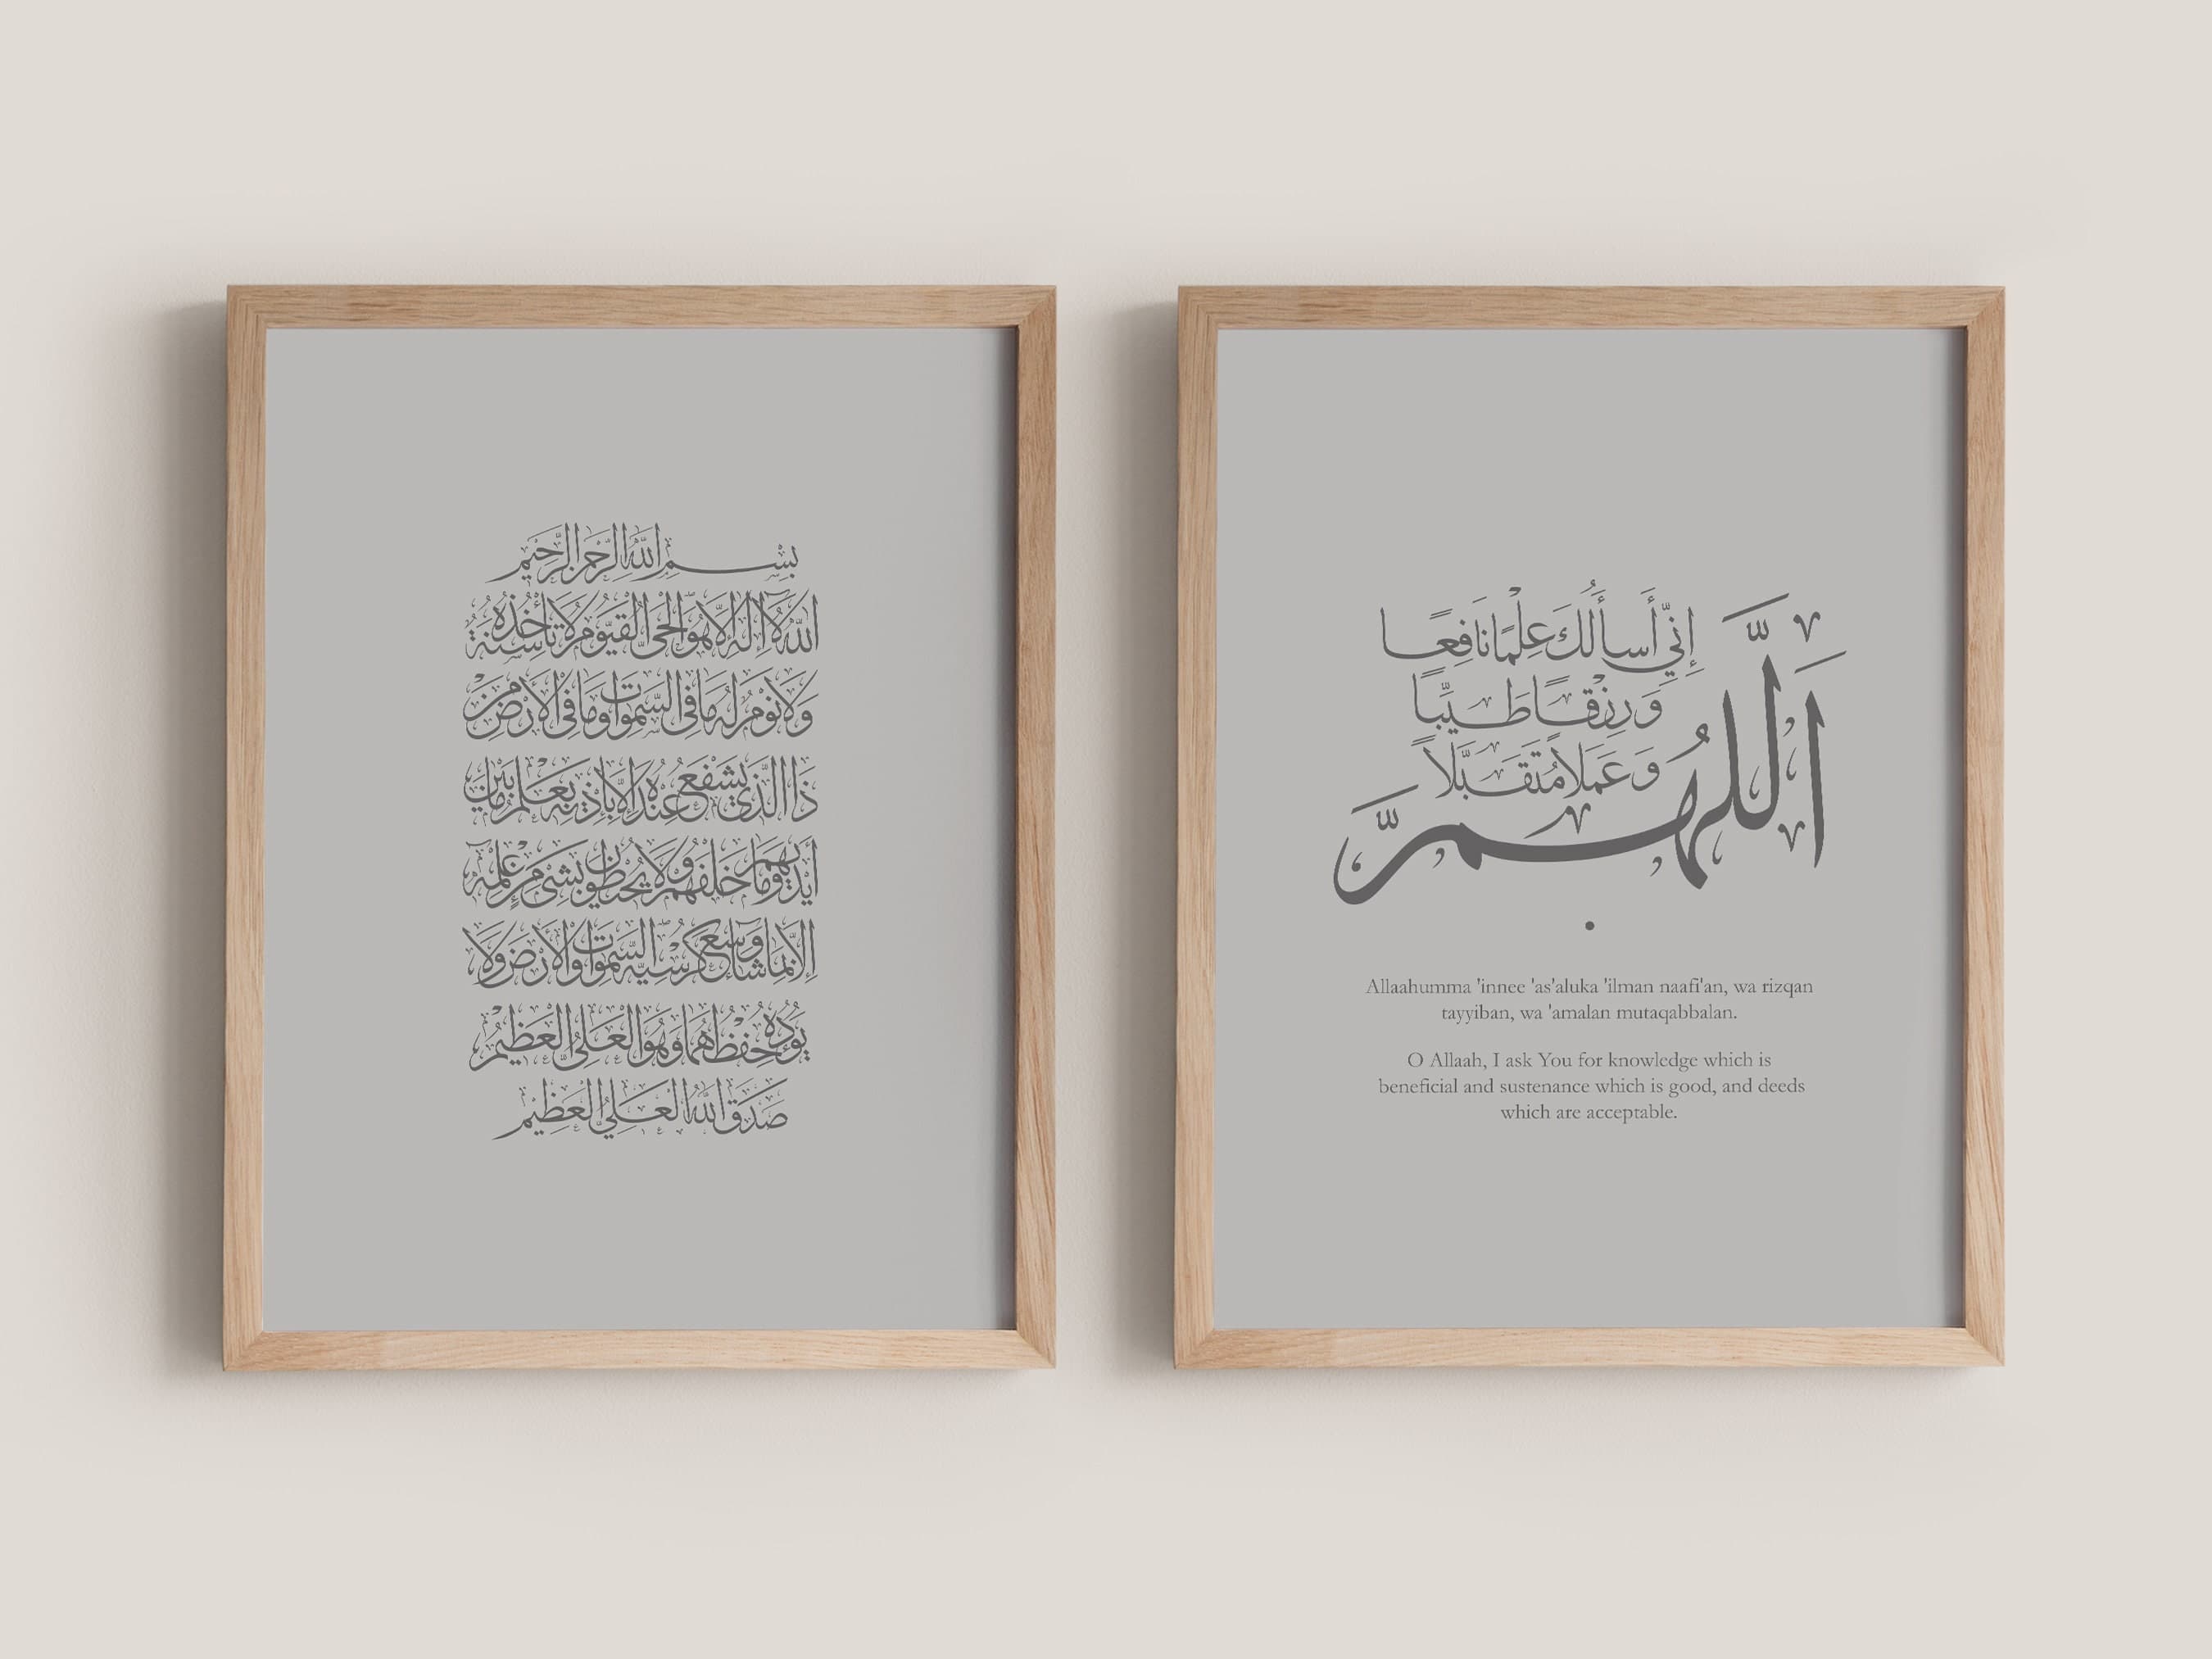 بسم الله الرحمن الرحيم
الله لا إله إلا هو الحي القيوم لا تأخذه سنة
ولا نوم له ما في السموات وما في الأرض من
ذا الذي يشفع عنده إلا بإذنه يعلم ما بين
أيديهم وما خلفهم ولا يحيطون بشيء من علمه
إلا بما شاء وسع كرسيه السموات والأرض ولا
يؤده حفظهما وهو العلي العظيم
صدق الله العلي العظيم
اَللّٰهُمَّ
إِنِّي أَسأَلُكَ عِلْمًا نَافِعًا
وَرِزْقًا طَيِّبًا
وَعَمَلًا مُتَقَبَّلًا
Allaahumma 'innee 'as'aluka 'ilman naafi'an, wa rizqan
tayyiban, wa 'amalan mutaqabbalan.
O Allaah, I ask You for knowledge which is
beneficial and sustenance which is good, and deeds
which are acceptable.